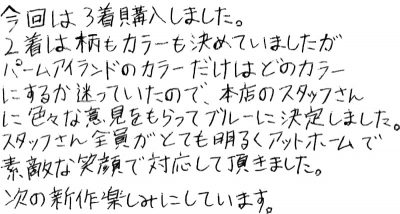 今回は3着購入しました。
2着は柄もカラーも決めていましたが
パームアイランドのカラーだけはどのカラー
にするか迷っていたので、本店のスタッフさん
に色々な意見をもらってブルーに決定しました。
スタッフさん全員がとても明るくアットホームで
素敵な笑顔で対応して頂きました。
次の新作楽しみにしています。